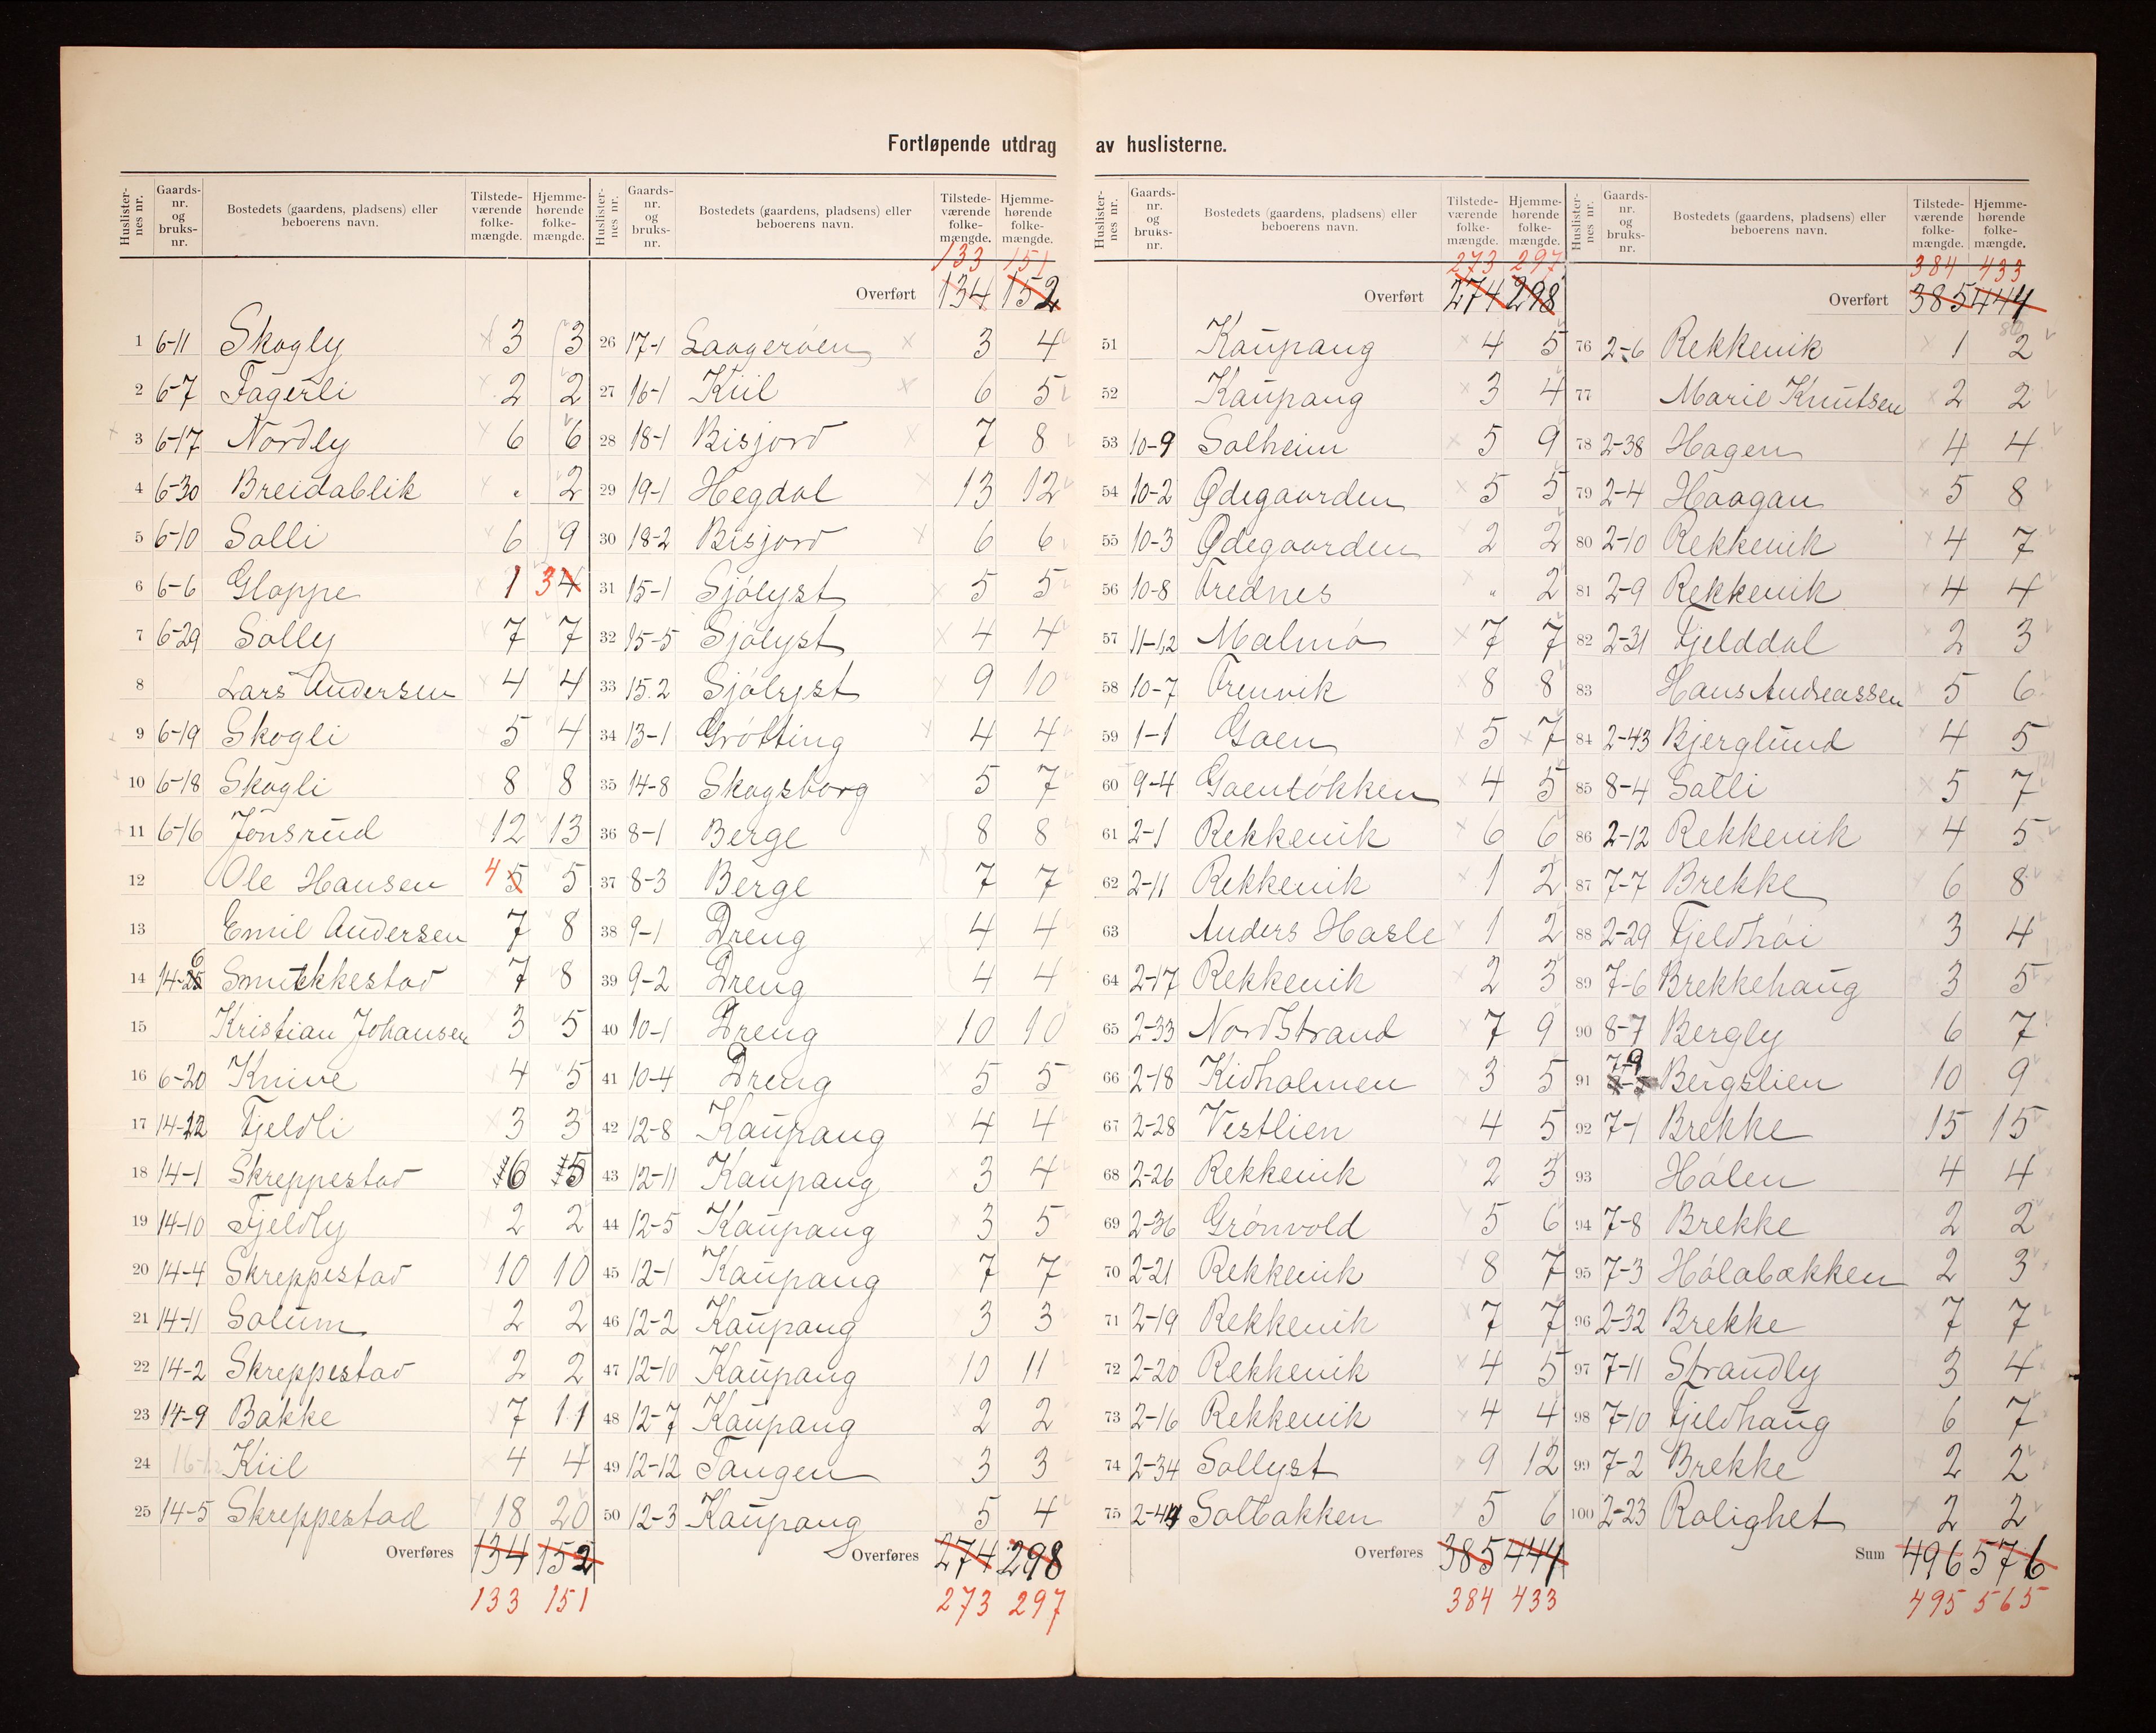 Fortløpende utdrag av huslisterne.
Huslister- nes nr. | Gaards- nr. og bruks- nr. | Bostedets (gaardens, pladsens) eller beboerens navn. | Tilstede- værende folke- mængde. | Hjemme- hørende folke- mængde.
1 6-11 Skogly 3 3
2 6-7 Fagerli 2 2
3 6-17 Nordly 6 6
4 6-30 Breidablik . 2
5 6-10 Solli 6 9
6 6-6 Gloppe 1 3 4
7 6-29 Solly 7 7
8 Lars Andersen 4 4
9 6-19 Skogli 5 4
10 6-18 Skogli 8 8
11 6-16 Jonsrud 12 13
12 Ole Hansen 4 5 5
13 Emil Andersen 7 8
14 14-6 Smukkestad 7 8
15 Kristian Johansen 3 5
16 6-20 Knive 4 5
17 14-22 Fjeldli 3 3
18 14-1 Skreppestad 6 5
19 14-10 Fjeldly 2 2
20 14-4 Skreppestad 10 10
21 14-11 Solum 2 2
22 14-2 Skreppestad 2 2
23 14-9 Bakke 7 11
24 Kiil 4 4
25 14-5 Skreppestad 18 20
Overføres 134 152
133 151
Huslister- nes nr. | Gaards- nr. og bruks- nr. | Bostedets (gaardens, pladsens) eller beboerens navn. | Tilstede- værende folke- mængde. | Hjemme- hørende folke- mængde.
133 151
Overført 134 152
26 17-1 Laagerøen 3 4
27 16-1 Kiil 6 5
28 18-1 Bisjord 7 8
29 19-1 Hegdal 13 12
30 18-2 Bisjord 6 6
31 15-1 Sjölyst 5 5
32 15-5 Sjölyst 4 4
33 15.2 Sjölyst 9 10
34 13-1 Grótting 4 4
35 14-8 Skogsborg 5 7
36 8-1 Berge 8 8
37 8-3 Berge 7 7
38 9-1 Dreng 4 4
39 9-2 Dreng 4 4
40 10-1 Dreng 10 10
41 10-4 Dreng 5 5
42 12-8 Kaupang 4 4
43 12-11 Kaupang 3 4
44 12-5 Kaupang 3 5
45 12-1 Kaupang 7 7
46 12-2 Kaupang 3 3
47 12-10 Kaupang 10 11
48 12-7 Kaupang 2 2
49 12-12 Tangen 3 3
50 12-3 Kaupang 5 4
Overføres 274 298
273 297
Huslister- nes nr. | Gaards- nr. og bruks- nr. | Bostedets (gaardens, pladsens) eller beboerens navn. | Tilstede- værende folke- mængde. | Hjemme- hørende folke- mængde.
273 297
Overført 274 298
51 Kaupang 4 5
52 Kaupang 3 4
53 10-9 Solheim 5 9
54 10-2 Ødegaarden 5 5
55 10-3 Ødegaarden 2 2
56 10-8 Frednes " 2
57 11-1,2 Malmø 7 7
58 10-7 Furuvik 8 8
59 1-1 Goen 5 7
60 9-4 Goenlökken 4 5
61 2-1 Rekkevik 6 6
62 2-11 Rekkevik 1 2
63 Anders Hasle 1 2
64 2-17 Rekkevik 2 3
65 2-33 Nordstrand 7 9
66 2-18 Kidholmen 3 5
67 2-28 Vestlien 4 5
68 2-26 Rekkevik 2 3
69 2-36 Grónvold 5 6
70 2-21 Rekkevik 8 7
71 2-19 Rekkevik 7 7
72 2-20 Rekkevik 4 5
73 2-16 Rekkevik 4 4
74 2-34 Sollyst 9 12
75 2-44 Solbakken 5 6
Overføres 385 444
384 433
Huslister- nes nr. | Gaards- nr. og bruks- nr. | Bostedets (gaardens, pladsens) eller beboerens navn. | Tilstede- værende folke- mængde. | Hjemme- hørende folke- mængde.
384 433
Overført 385 444
76 2-6 Rekkevik 1 2
77 Marie Knutsen 2 2
78 2-38 Hagen 4 4
79 2-4 Haagan 5 8
80 2-10 Rekkevik 4 7
81 2-9 Rekkevik 4 4
82 2-31 Fjelddal 2 3
83 Hans Andreassen 5 6
84 2-43 Bjerglund 4 5
85 8-4 Solli 5 7
86 2-12 Rekkevik 4 5
87 7-7 Brekke 6 8
88 2-29 Fjeldhöi 3 4
89 7-6 Brekkehaug 3 5
90 8-7 Bergly 6 7
91 7-9 Bergslien 10 9
92 7-1 Brekke 15 15
93 Hólen 4 4
94 7-8 Brekke 2 2
95 7-3 Hólabækken 2 3
96 2-32 Brekke 7 7
97 7-11 Strandly 3 4
98 7-10 Fjeldhaug 6 7
99 7-2 Brekke 2 2
100 2-23 Rolighet 2 2
Sum 496 576
495 565